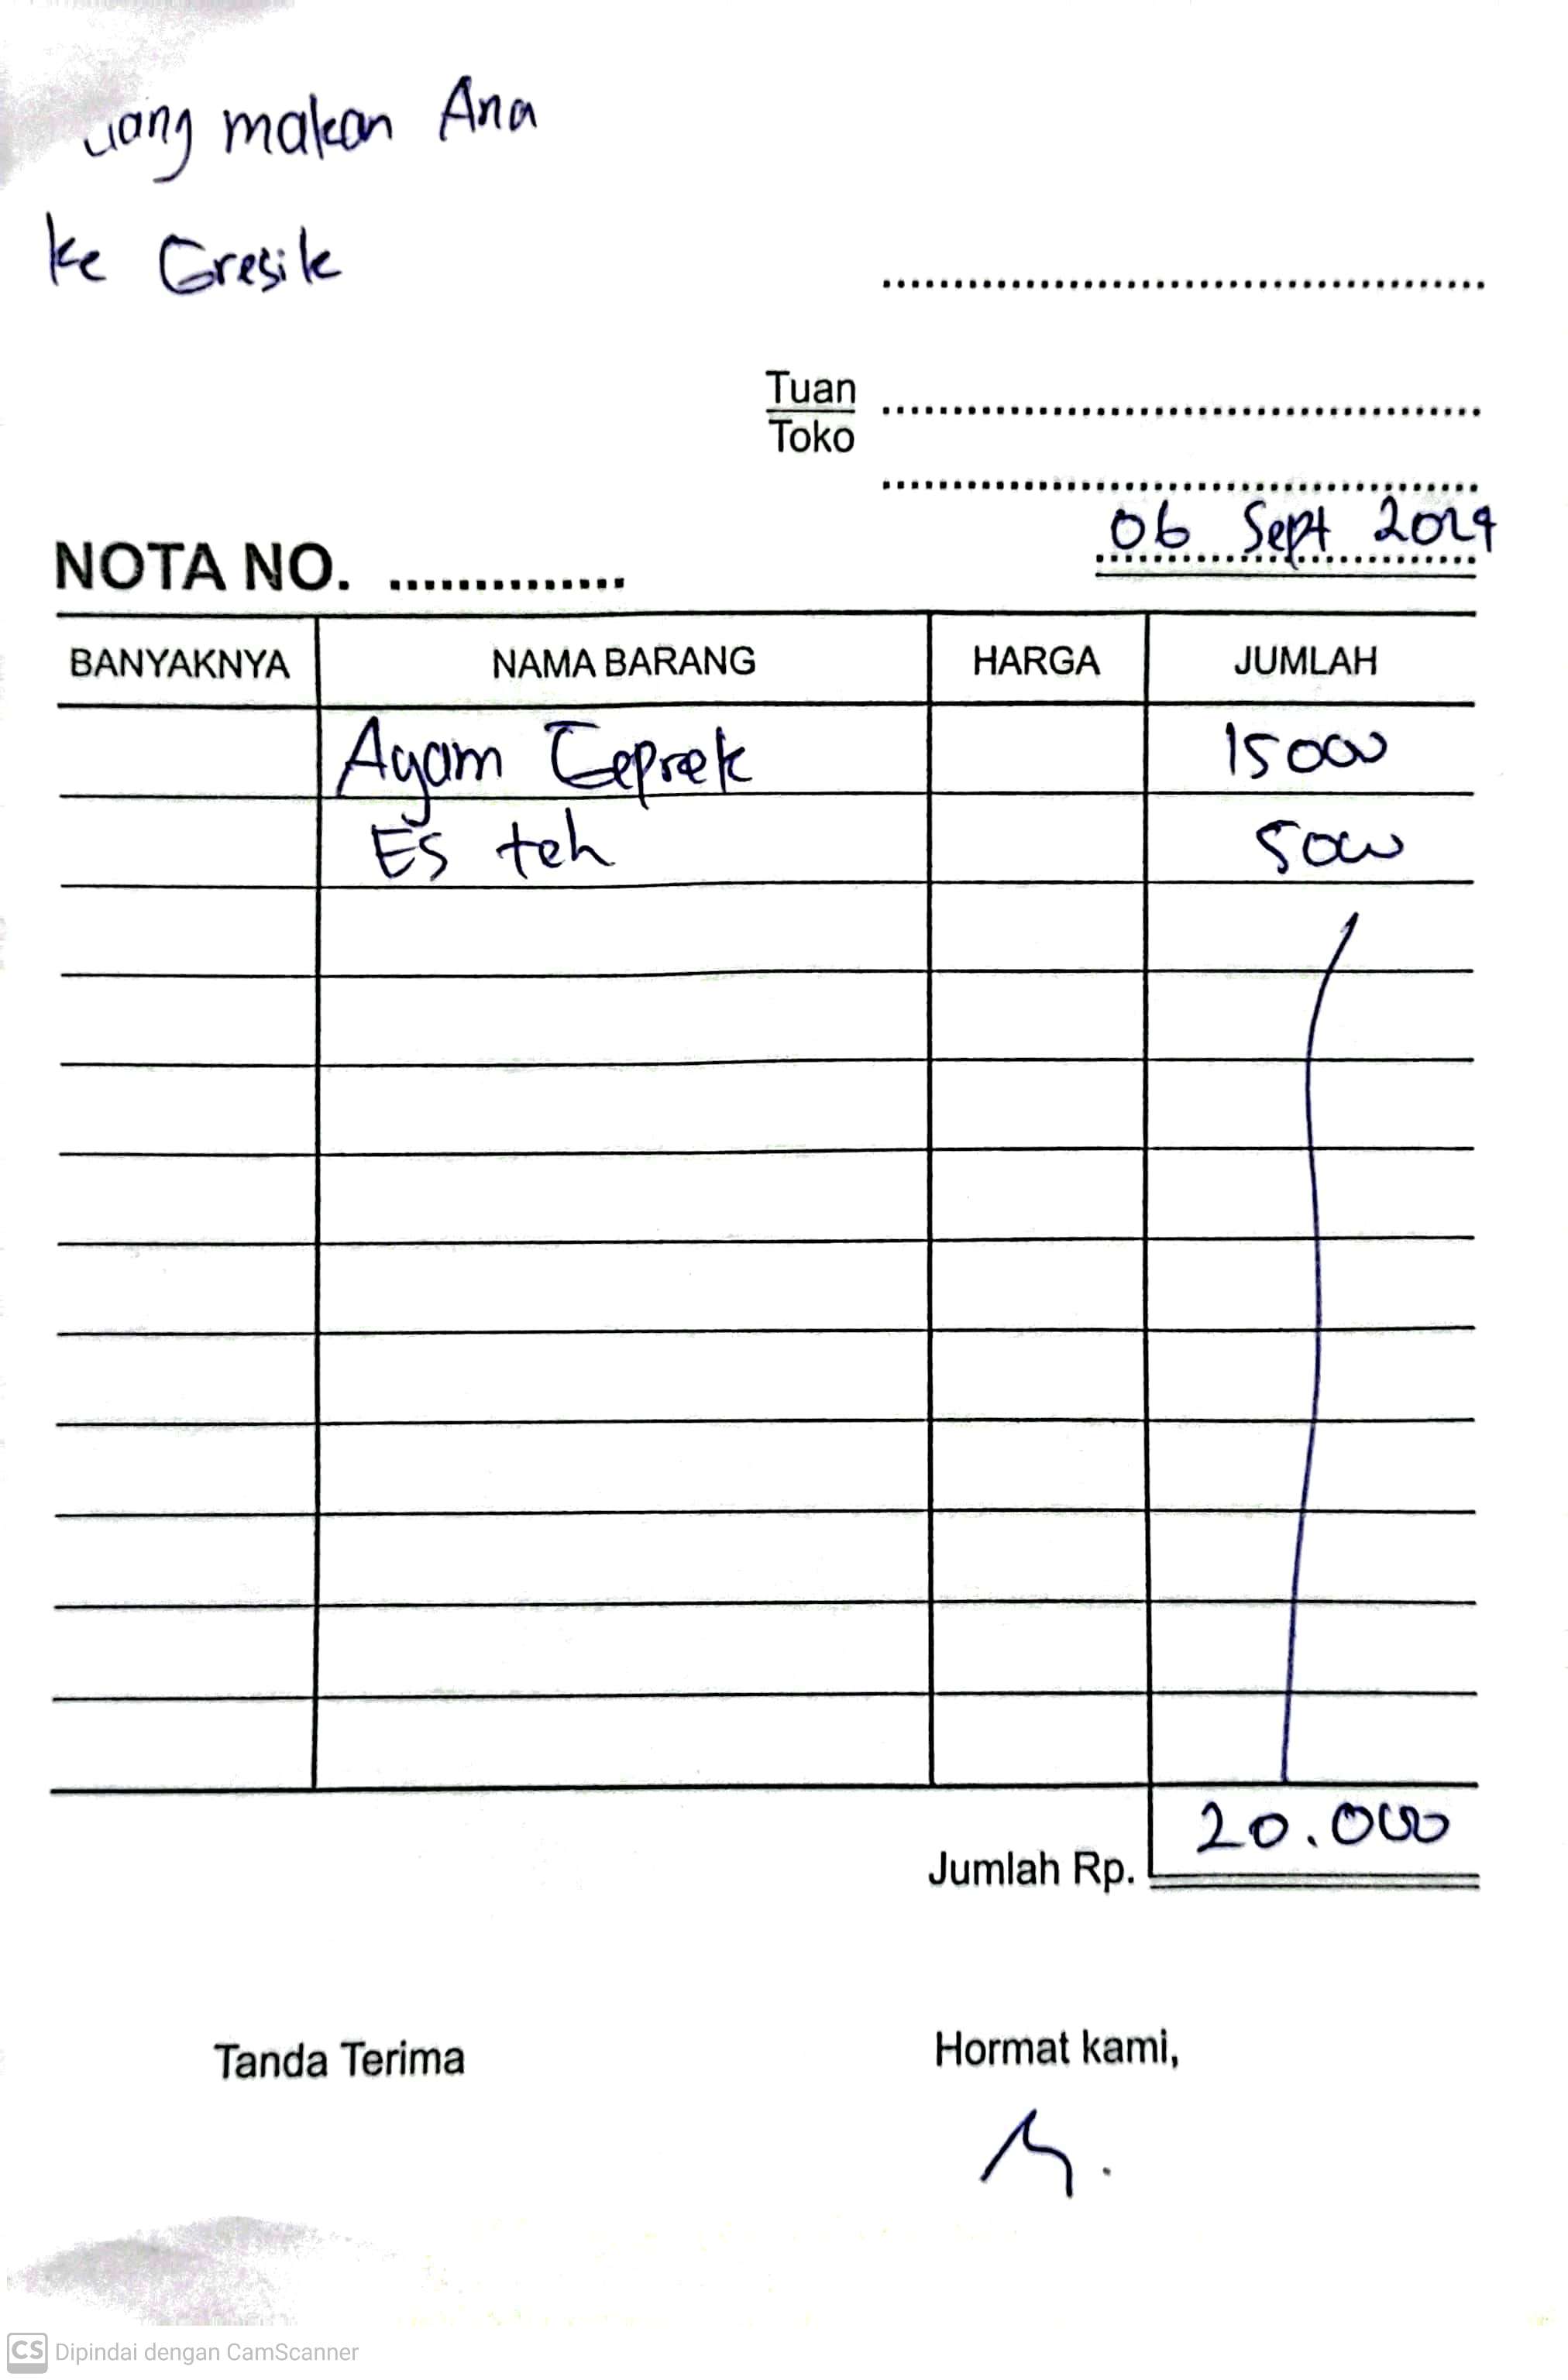 uang makan Ana
ke Gresik
Tuan
Toko
06 Sept 2024
NOTA NO. ...............
BANYAKNYA NAMA BARANG HARGA JUMLAH
Ayam Geprek 15000
Es teh 5000
20.000
Jumlah Rp.
Tanda Terima Hormat kami,
CS Dipindai dengan CamScanner